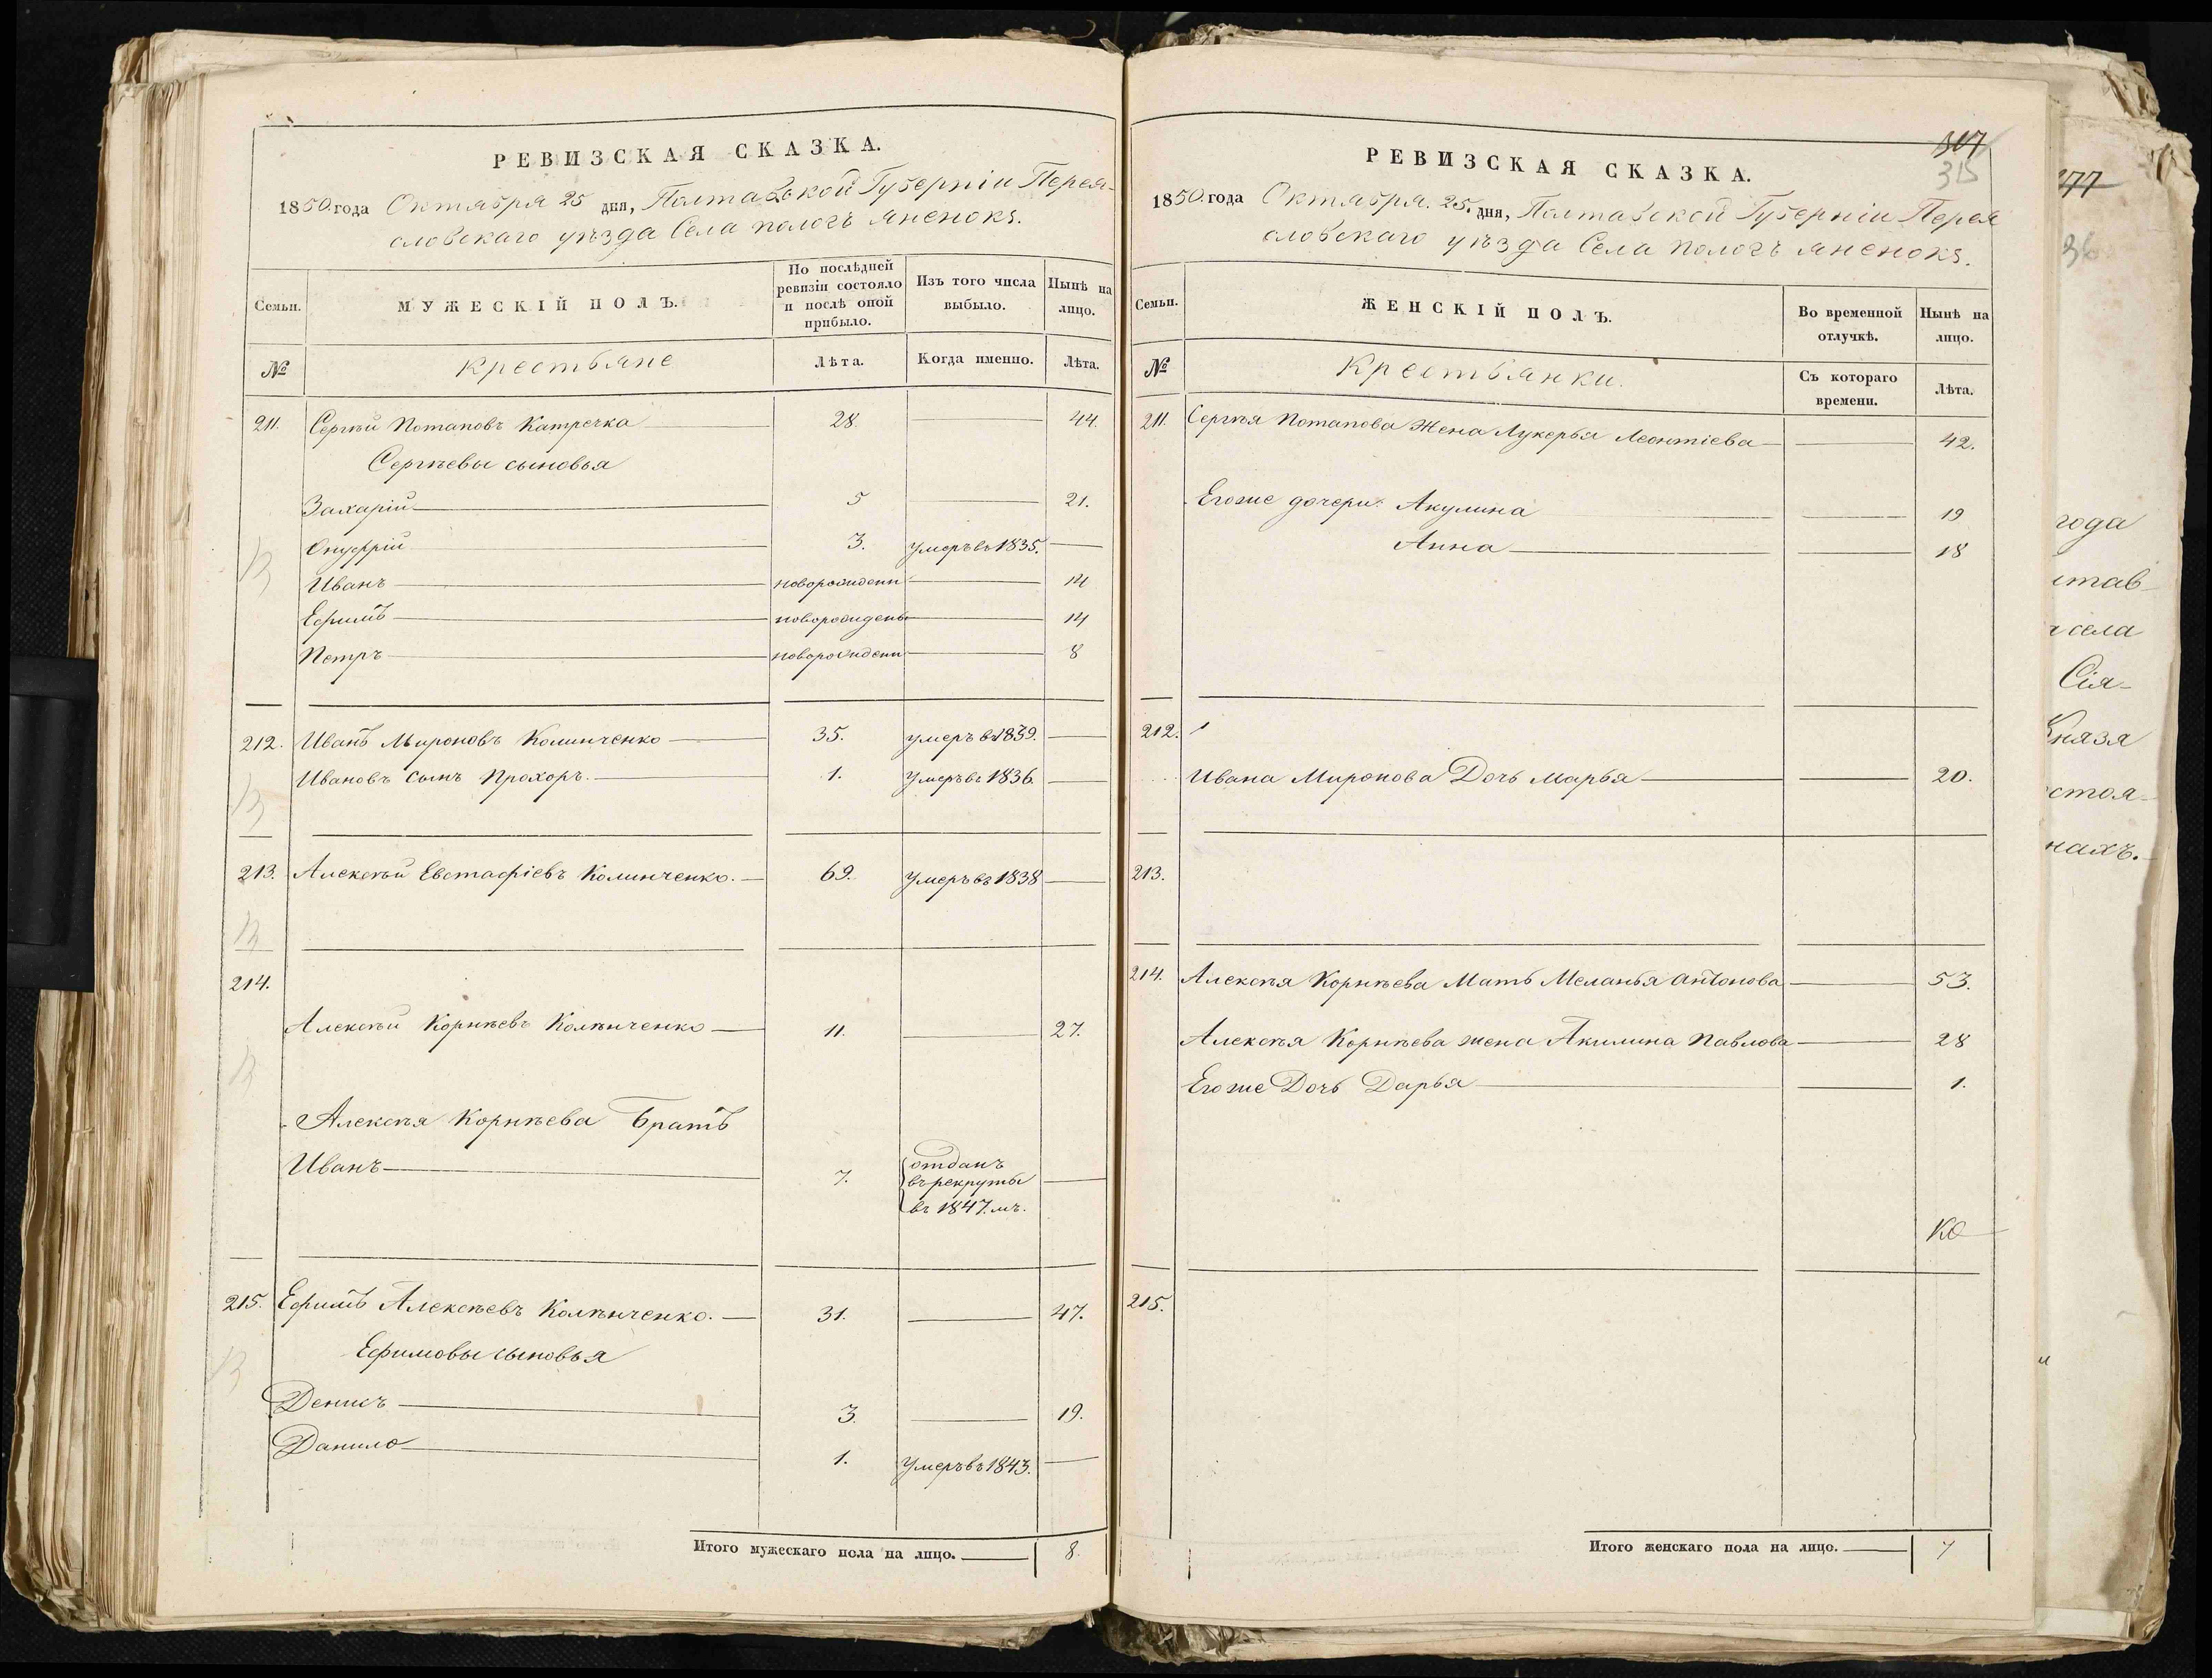 РЕВИЗСКАЯ СКАЗКА.
1850 года Октября 25 дня, Полтавской Губерніи Перея-
словскаго уѣзда Села пологъ яненокъ.
Семьи.
МУЖЕСКІЙ ПОЛЪ.
По послѣдней
ревизіи состояло
и послѣ оной
прибыло.
Изъ того числа
выбыло.
Нынѣ на
лицо.
№
Крестьяне
Лѣта.
Когда именно.
Лѣта.
211. Сергѣй Потаповъ Катречка 28. 44.
Сергѣевы сыновья
Захарій 5 21.
Онуфрій 3. умеръ въ 1835.
Иванъ новорожденн 14
Ефимъ новорожденъ 14
Петръ новорожденн 8
212. Иванъ Мироновъ Колинченко 35. умеръ въ 1839.
Ивановъ сынъ Прохоръ. 1. Умеръ въ 1836.
213. Алексѣй Евстафіевъ Колинченко. 69. Умеръ въ 1838
214.
Алексѣй Корнѣевъ Колѣнченко 11. 27.
Алексѣя Корнѣева Братъ
Иванъ 7. отданъ
въ рекруты
въ 1847. мъ.
215. Ефимъ Алексѣевъ Колѣнченко. 31. 47.
Ефимовы сыновья
Денисъ 3. 19.
Данило 1. Умеръ въ 1843.
Итого мужескаго пола на лицо. 8.
307
315
РЕВИЗСКАЯ СКАЗКА.
1850. года Октября. 25. дня, Полтавской Губерніи Перея
словскаго уѣзда Села пологъ яненокъ.
Семьи.
ЖЕНСКІЙ ПОЛЪ.
Во временной
отлучкѣ.
Нынѣ на
лицо.
№
Крестьянки.
Съ котораго
времени.
Лѣта.
211. Сергѣя Потапова Жена Лукерья Леонтіева 42.
Егоже дочери: Акулина 19
Анна 18
212.
Ивана Миронова Дочь Марья 20.
213.
214. Алексѣя Корнѣева Мать Меланья Антонова 53.
Алексѣя Корнѣева жена Акилина Павлова 28
Егоже Дочь Дарья 1.
215.
Итого женскаго пола на лицо. 7
77
36
года
став-
села
Сія-
Князя
стоя-
нахъ.